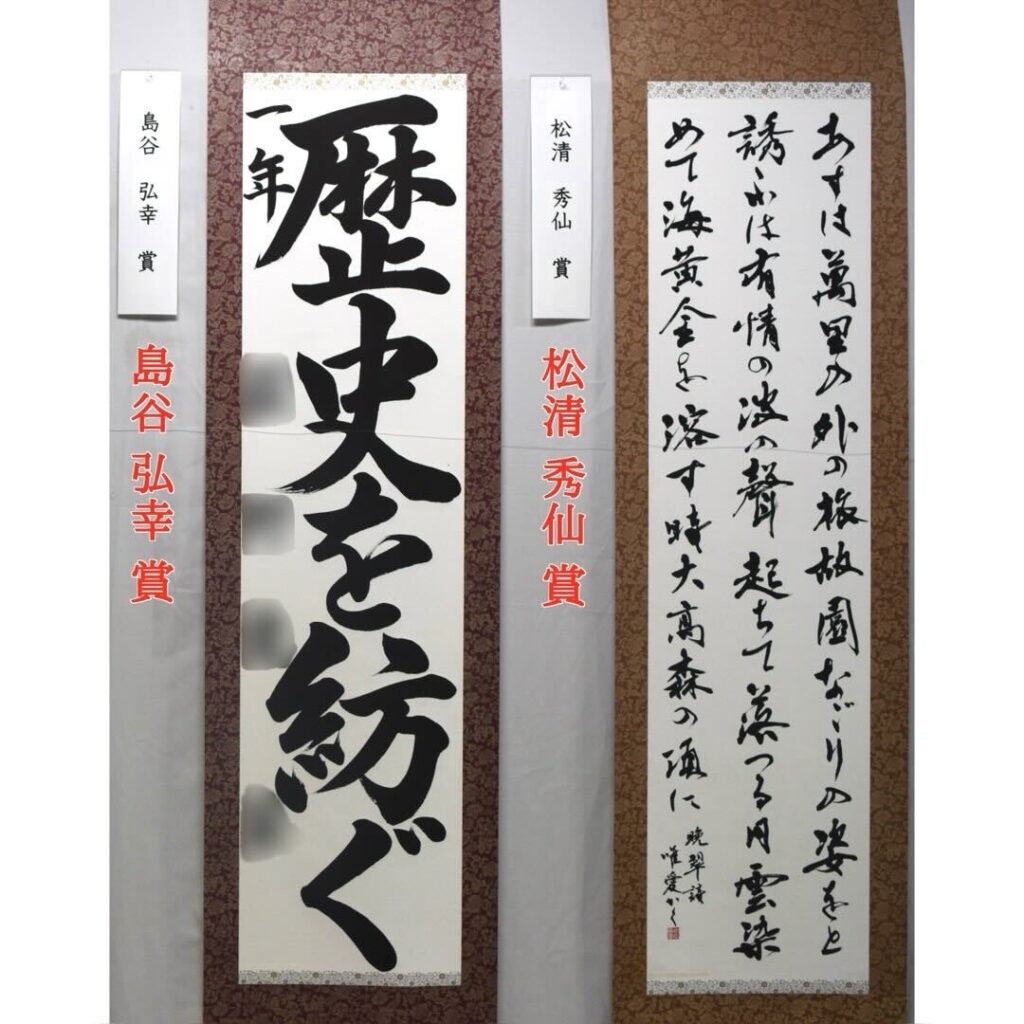 島谷 弘幸 賞
島谷 弘幸 賞
歴史を紡ぐ
一年
松清 秀仙 賞
松清 秀仙 賞
あすは萬里の外の旅故園なごりの姿をと
誘は有情の波の聲起ちて落つる月雲染
めて海黄金を溶す時大高森の頂に
晩翠詩
唯愛かく